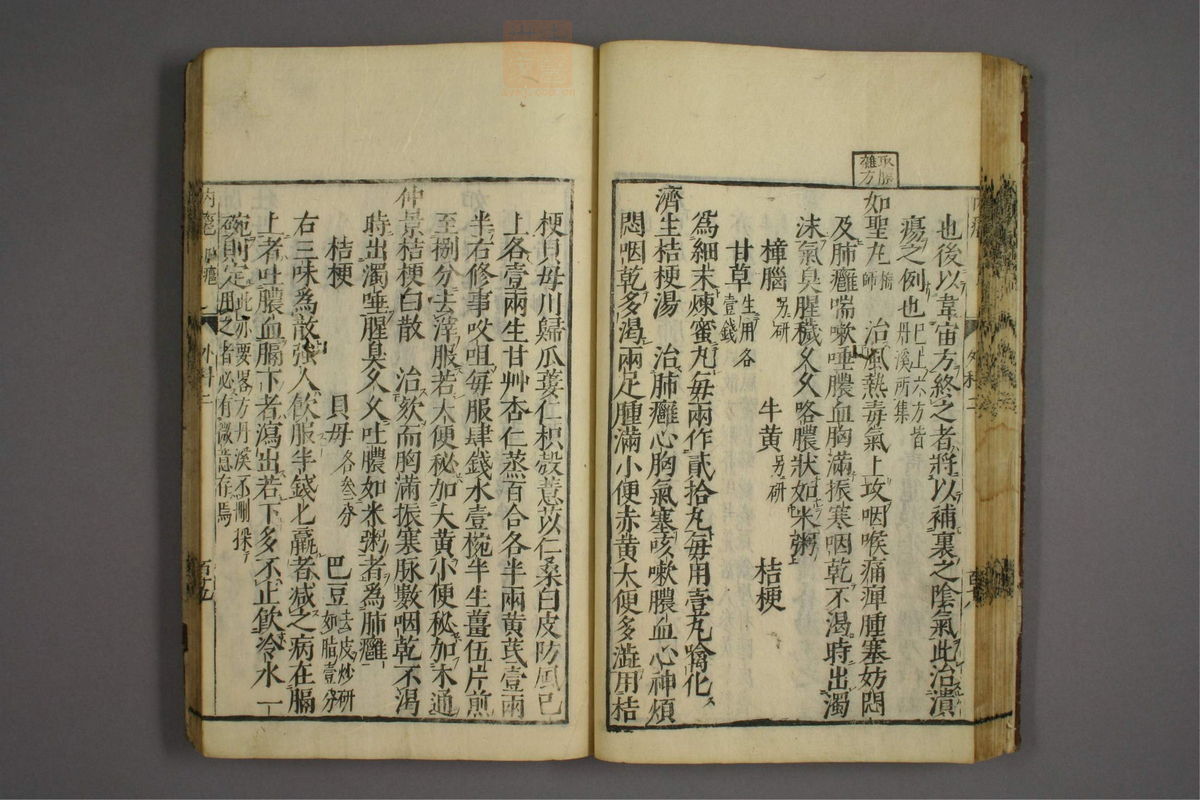 也後以韋宙方終之者將以補裏之陰氣此治潰
瘍之例也已上六方皆丹溪所集
取膿雜方
如聖丸 治風熱毒氣上攻咽喉痛痺腫塞妨悶
及肺癰喘嗽唾膿血胸滿振寒咽乾不渴時出濁
沫氣臭腥穢久久咯膿狀如米粥
樟腦另研 牛黃另研 桔梗
甘草生用各壹錢
為細末煉蜜丸每兩作貳拾丸每用壹丸噙化
濟生桔梗湯 治肺癰心胸氣塞咳嗽膿血心神煩
悶咽乾多渴兩足腫滿小便赤黃大便多澁用桔
梗貝母川歸瓜蔞仁枳殼薏苡仁桑白皮防風已
上各壹兩生甘艸杏仁蒸百合各半兩黃芪壹兩
半右修事㕮咀每服肆錢水壹椀半生薑伍片煎
至捌分去滓服若大便秘加大黃小便秘加木通
仲景桔梗白散 治欬而胸滿振寒脉數咽乾不渴
時出濁唾腥臭久久吐膿如米粥者為肺癰
桔梗 貝母各叁分 巴豆去皮炒研如脂壹分
右三味為散強人飲服半錢匕羸者减之病在膈
上者吐膿血膈下者瀉出若下多不止飲冷水一
椀則定此亦要畧方丹溪不刪採
用之者必有微意存焉
內癰 肺癰 外科二 百九